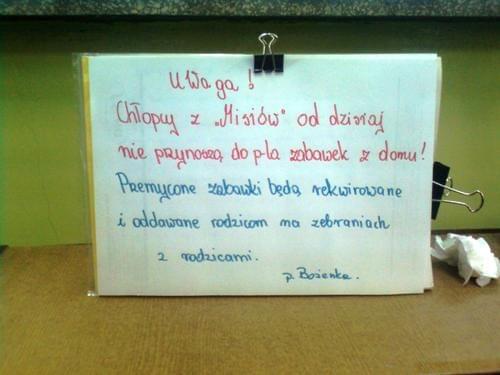 Uwaga!
Chłopcy z „Misiów" od dzisiaj
nie przynoszą do p-la zabawek z domu!
Przemycone zabawki będą rekwirowane
i oddawane rodzicom na zebraniach
z rodzicami.
p. Bożenka.